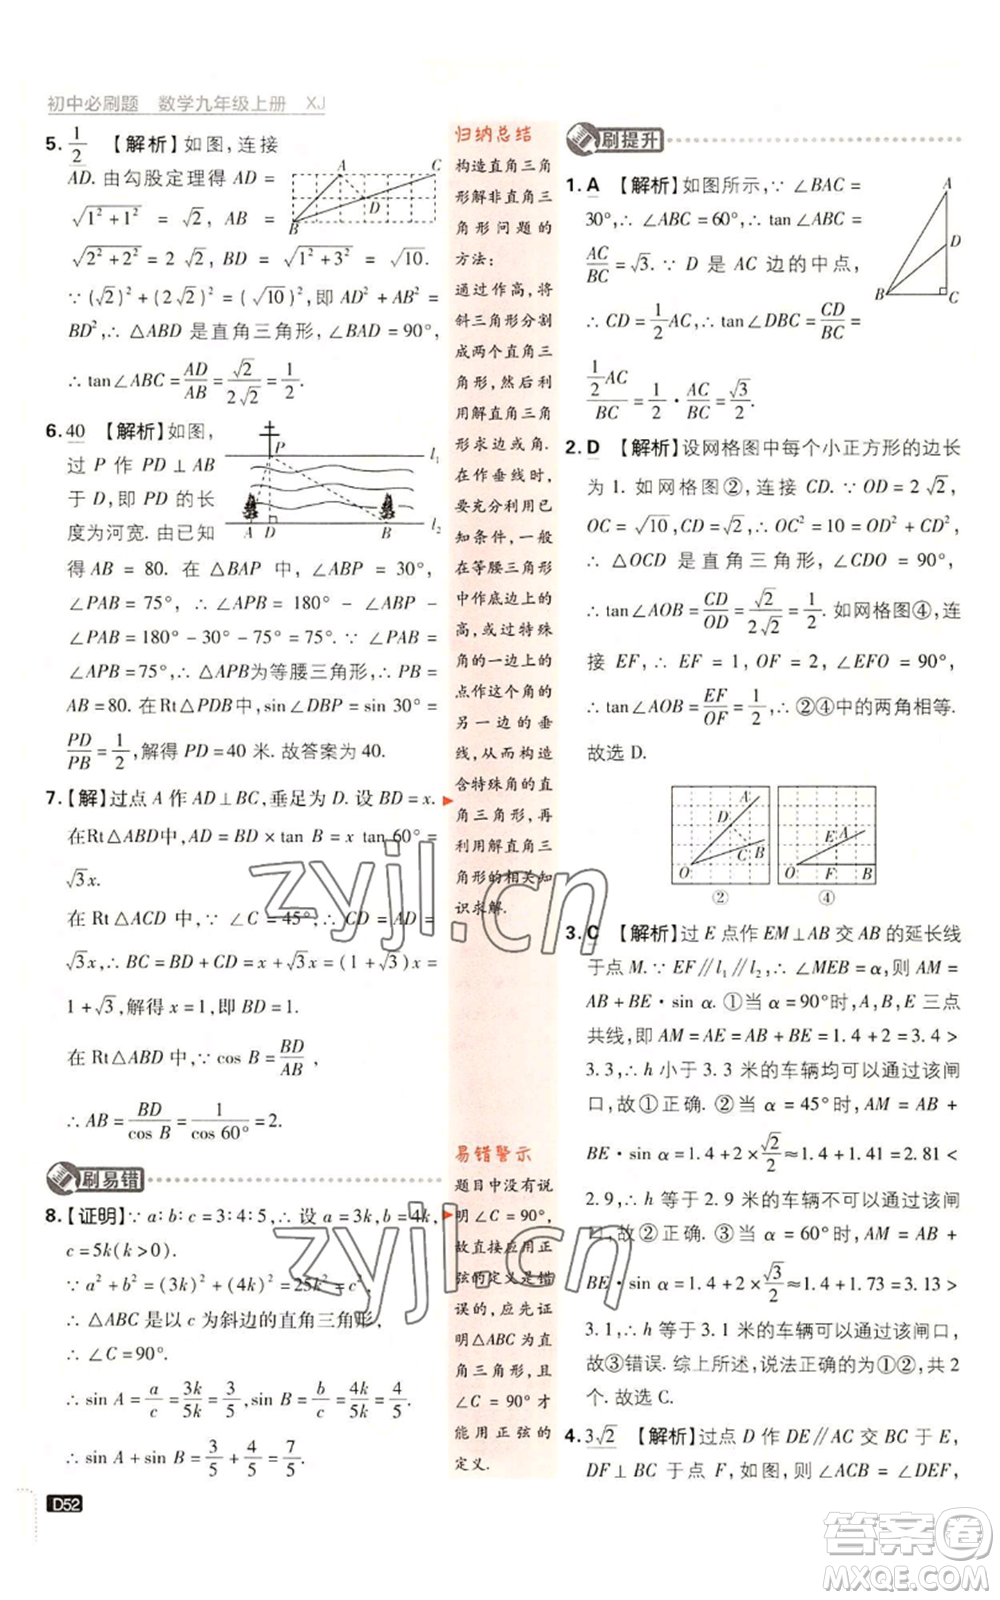 初中必刷题 数学九年级上册 XJ
5. 1/2 【解析】如图,连接
AD. 由勾股定理得 AD =
√(1²+1²) = √2, AB =
√(2²+2²) = 2√2, BD = √(1²+3²) = √10.
∵ (√2)² + (2√2)² = (√10)², 即 AD² + AB² =
BD², ∴ △ABD 是直角三角形, ∠BAD = 90°,
∴ tan∠ABC = AD/AB = √2/2√2 = 1/2.
A
C
D
B
6. 40 【解析】如图,
过 P 作 PD ⊥ AB
于 D, 即 PD 的长
度为河宽. 由已知
P
l₁
l₂
A D B
得 AB = 80. 在 △BAP 中, ∠ABP = 30°,
∠PAB = 75°, ∴ ∠APB = 180° - ∠ABP -
∠PAB = 180° - 30° - 75° = 75°. ∵ ∠PAB =
∠APB = 75°, ∴ △PAB 为等腰三角形, ∴ PB =
AB = 80. 在 Rt△PDB 中, sin∠DBP = sin 30° =
PD/PB = 1/2, 解得 PD = 40 米. 故答案为 40.
7. 【解】过点 A 作 AD ⊥ BC, 垂足为 D. 设 BD = x.
在 Rt△ABD 中, AD = BD × tan B = x tan 60° =
√3x.
在 Rt△ACD 中, ∵ ∠C = 45°, ∴ CD = AD =
√3x, ∴ BC = BD + CD = x + √3x = (1+√3)x =
1+√3, 解得 x = 1, 即 BD = 1.
在 Rt△ABD 中, ∵ cos B = BD/AB,
∴ AB = BD/cos B = 1/cos 60° = 2.
刷易错
8. 【证明】∵ a:b:c = 3:4:5, ∴ 设 a = 3k, b = 4k,
c = 5k(k>0).
∵ a² + b² = (3k)² + (4k)² = 25k² = c²,
∴ △ABC 是以 c 为斜边的直角三角形,
∴ ∠C = 90°.
∴ sin A = a/c = 3k/5k = 3/5, sin B = b/c = 4k/5k = 4/5,
∴ sin A + sin B = 3/5 + 4/5 = 7/5.
D52
归纳总结
构造直角三角
形解非直角三
角形问题的
方法:
通过作高,将
斜三角形分割
成两个直角三
角形,然后利
用解直角三角
形求边或角.
在作垂线时,
要充分利用已
知条件,一般
在等腰三角形
中作底边上的
高,或过特殊
角的一边上的
点作这个角的
另一边的垂
线,从而构造
含特殊角的直
角三角形,再
利用解直角三
角形的相关知
识求解.
易错警示
题目中没有说
明∠C = 90°,
故直接应用正
弦的定义是错
误的,应先证
明△ABC 为直
角三角形,且
∠C = 90°才
能用正弦的
定义.
刷提升
1. A 【解析】如图所示, ∵ ∠BAC =
30°, ∴ ∠ABC = 60°, ∴ tan∠ABC =
AC/BC = √3. ∵ D 是 AC 的中点,
∴ CD = 1/2 AC, ∴ tan∠DBC = CD/BC =
(1/2 AC)/BC = 1/2 · AC/BC = √3/2.
A
D
B
C
2. D 【解析】设网格图中每个小正方形的边长
为 1. 如网格图②, 连接 CD. ∵ OD = 2√2,
OC = √10, CD = √2, ∴ OC² = 10 = OD² + CD²,
∴ △OCD 是直角三角形, ∠CDO = 90°,
∴ tan∠AOB = CD/OD = √2/2√2 = 1/2. 如网格图④, 连
接 EF, ∴ EF = 1, OF = 2, ∠EFO = 90°,
∴ tan∠AOB = EF/OF = 1/2, ∴ ②④中的两角相等.
故选 D.
A
D
C B
O
②
E A
O F B
④
3. C 【解析】过 E 点作 EM ⊥ AB 交 AB 的延长线
于点 M. ∵ EF // l₁ // l₂, ∴ ∠MEB = α, 则 AM =
AB + BE · sin α. ①当 α = 90° 时, A, B, E 三点
共线, 即 AM = AE = AB + BE = 1.4 + 2 = 3.4 >
3.3, ∴ h 小于 3.3 米的车辆均可以通过该闸
口, 故①正确. ②当 α = 45° 时, AM = AB +
BE · sin α = 1.4 + 2 × √2/2 ≈ 1.4 + 1.41 = 2.81 <
2.9, ∴ h 等于 2.9 米的车辆不可以通过该闸
口, 故②正确. ③当 α = 60° 时, AM = AB +
BE · sin α = 1.4 + 2 × √3/2 ≈ 1.4 + 1.73 = 3.13 >
3.1, ∴ h 等于 3.1 米的车辆可以通过该闸口,
故③错误. 综上所述, 说法正确的为①②, 共 2
个. 故选 C.
4. 3√2 【解析】过点 D 作 DE // AC 交 BC 于 E,
DF ⊥ BC 于点 F, 如图, 则 ∠ACB = ∠DEF,
zyjl.cn
zyjl.cn
答案圈
MXQE.COM